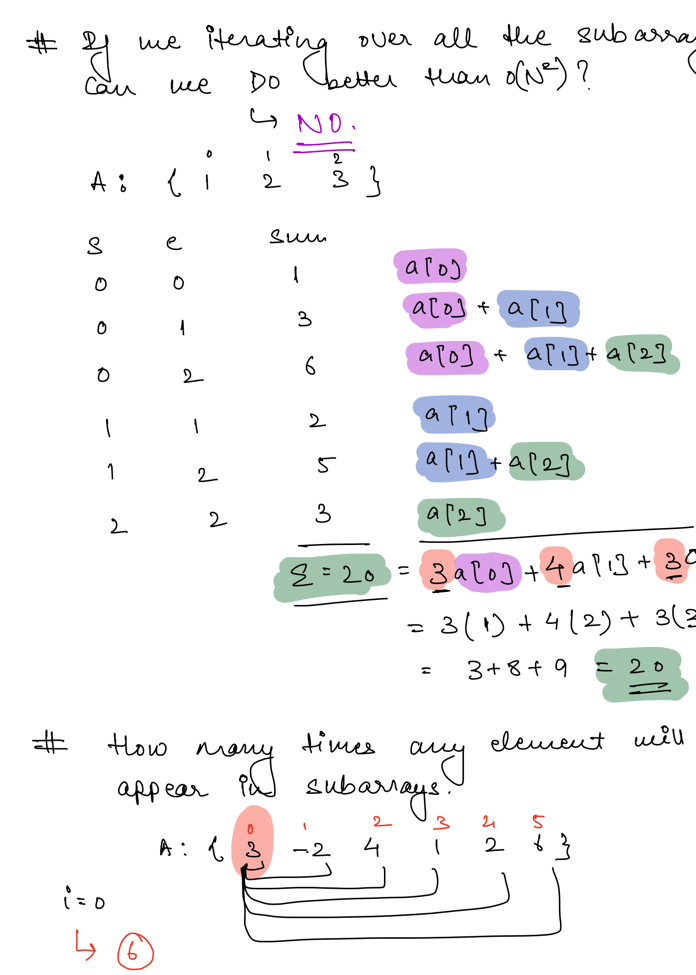 # If we iterating over all the subarray
Can we DO better than O(N²)?
↳ NO.
0 1 2
A: { 1 2 3 }
S e sum
0 0 1 a[0]
0 1 3 a[0] + a[1]
0 2 6 a[0] + a[1] + a[2]
1 1 2 a[1]
1 2 5 a[1] + a[2]
2 2 3 a[2]
Σ = 20 = 3a[0] + 4a[1] + 3
= 3(1) + 4(2) + 3(3
= 3+8+9 = 20
# How many times any element will
appear in subarrays.
0 1 2 3 4 5
A: { 3 -2 4 1 2 6 }
i=0
↳ 6